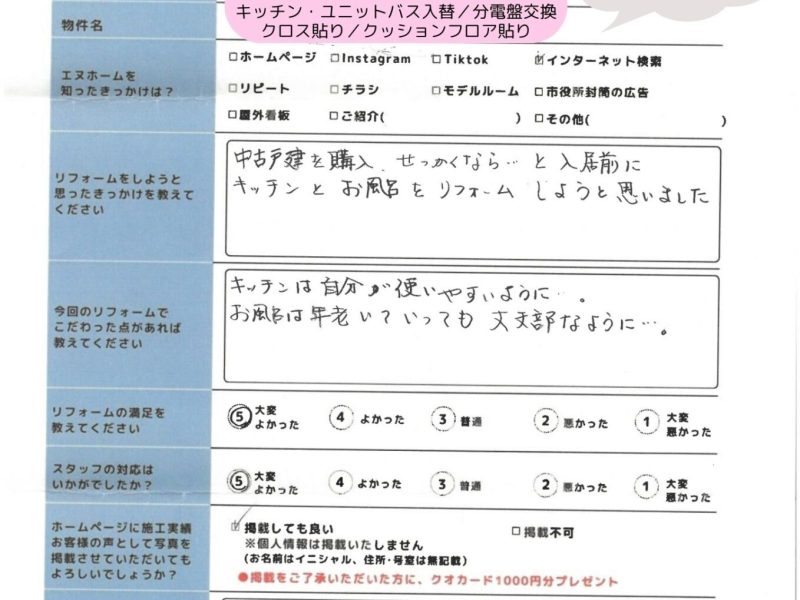 キッチン・ユニットバス入替／分電盤交換
クロス貼り／クッションフロア貼り
物件名
エヌホームを
知ったきっかけは？
□ホームページ □Instagram □Tiktok ☑インターネット検索
□リピート □チラシ □モデルルーム □市役所封筒の広告
□屋外看板 □ご紹介( ) □その他( )
リフォームをしようと
思ったきっかけを教えて
ください
中古戸建を購入、せっかくなら…と入居前に
キッチンとお風呂をリフォームしようと思いました
今回のリフォームで
こだわった点があれば
教えてください
キッチンは自分が使いやすいように…。
お風呂は年老いていっても丈夫なように…。
リフォームの満足を
教えてください
5 大変よかった 4 よかった 3 普通 2 悪かった 1 大変悪かった
スタッフの対応は
いかがでしたか？
5 大変よかった 4 よかった 3 普通 2 悪かった 1 大変悪かった
ホームページに施工実績
お客様の声として写真を
掲載させていただいても
よろしいでしょうか？
☑掲載しても良い □掲載不可
※個人情報は掲載いたしません
(お名前はイニシャル、住所・号室は無記載)
●掲載をご了承いただいた方に、クオカード1000円分プレゼント